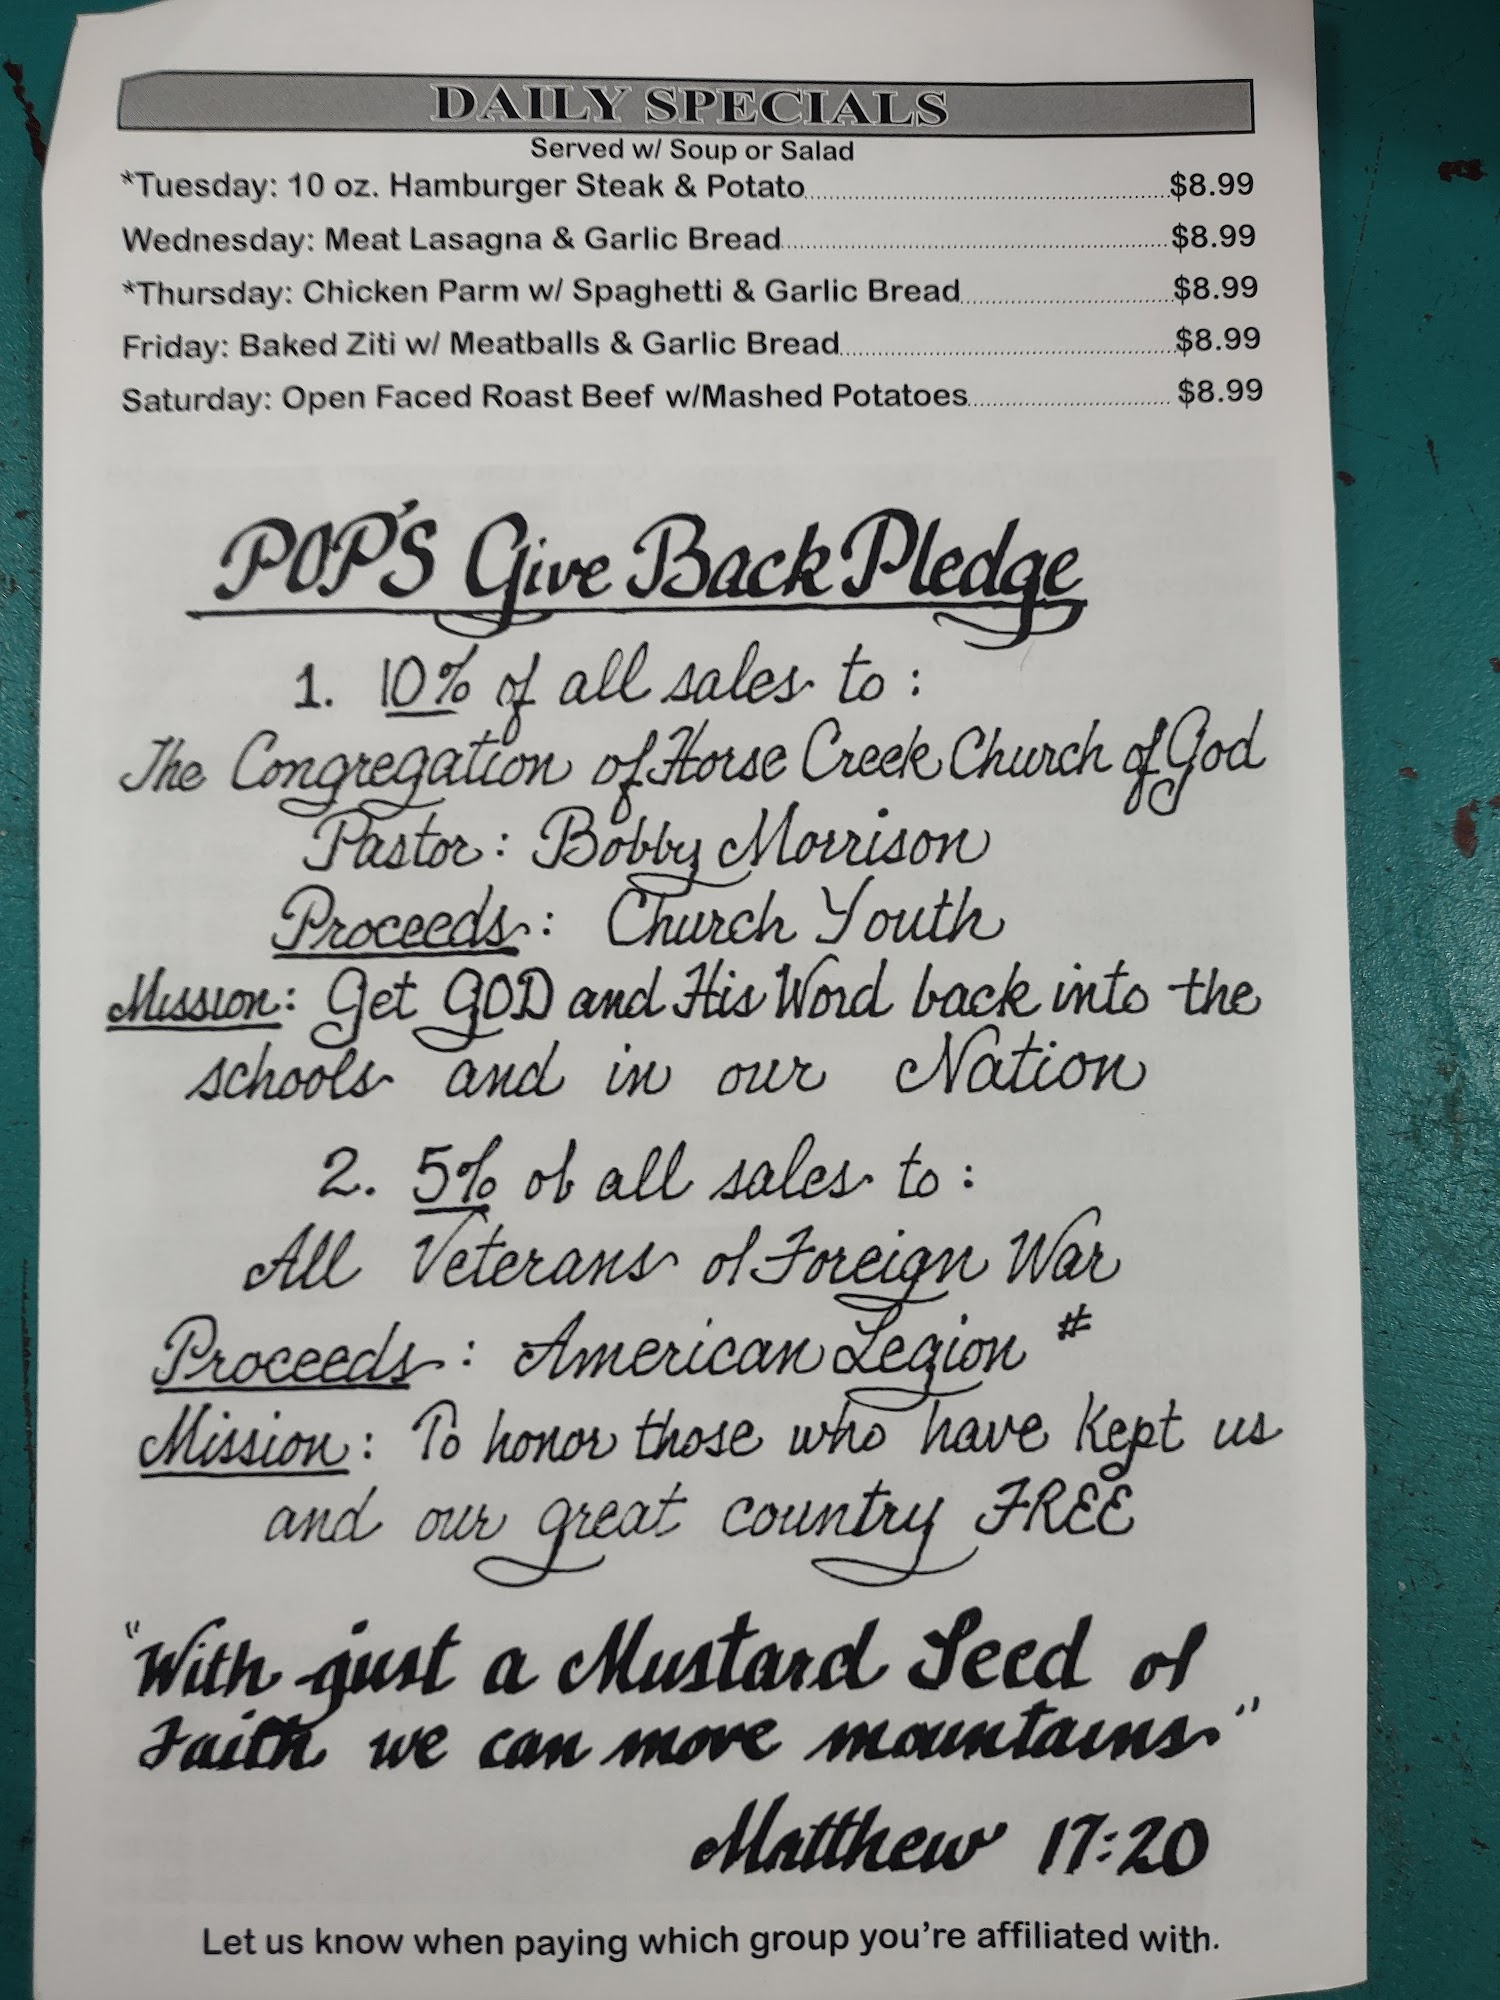 DAILY SPECIALS
Served w/ Soup or Salad
*Tuesday: 10 oz. Hamburger Steak & Potato $8.99
Wednesday: Meat Lasagna & Garlic Bread $8.99
*Thursday: Chicken Parm w/ Spaghetti & Garlic Bread $8.99
Friday: Baked Ziti w/ Meatballs & Garlic Bread $8.99
Saturday: Open Faced Roast Beef w/Mashed Potatoes $8.99
POP'S Give Back Pledge
1. 10% of all sales to:
The Congregation of Horse Creek Church of God
Pastor: Bobby Morrison
Proceeds: Church Youth
Mission: Get GOD and His Word back into the
schools and in our Nation
2. 5% of all sales to:
All Veterans of Foreign War
Proceeds: American Legion #
Mission: To honor those who have kept us
and our great country FREE
"With just a Mustard Seed of
Faith we can move mountains."
Matthew 17:20
Let us know when paying which group you're affiliated with.